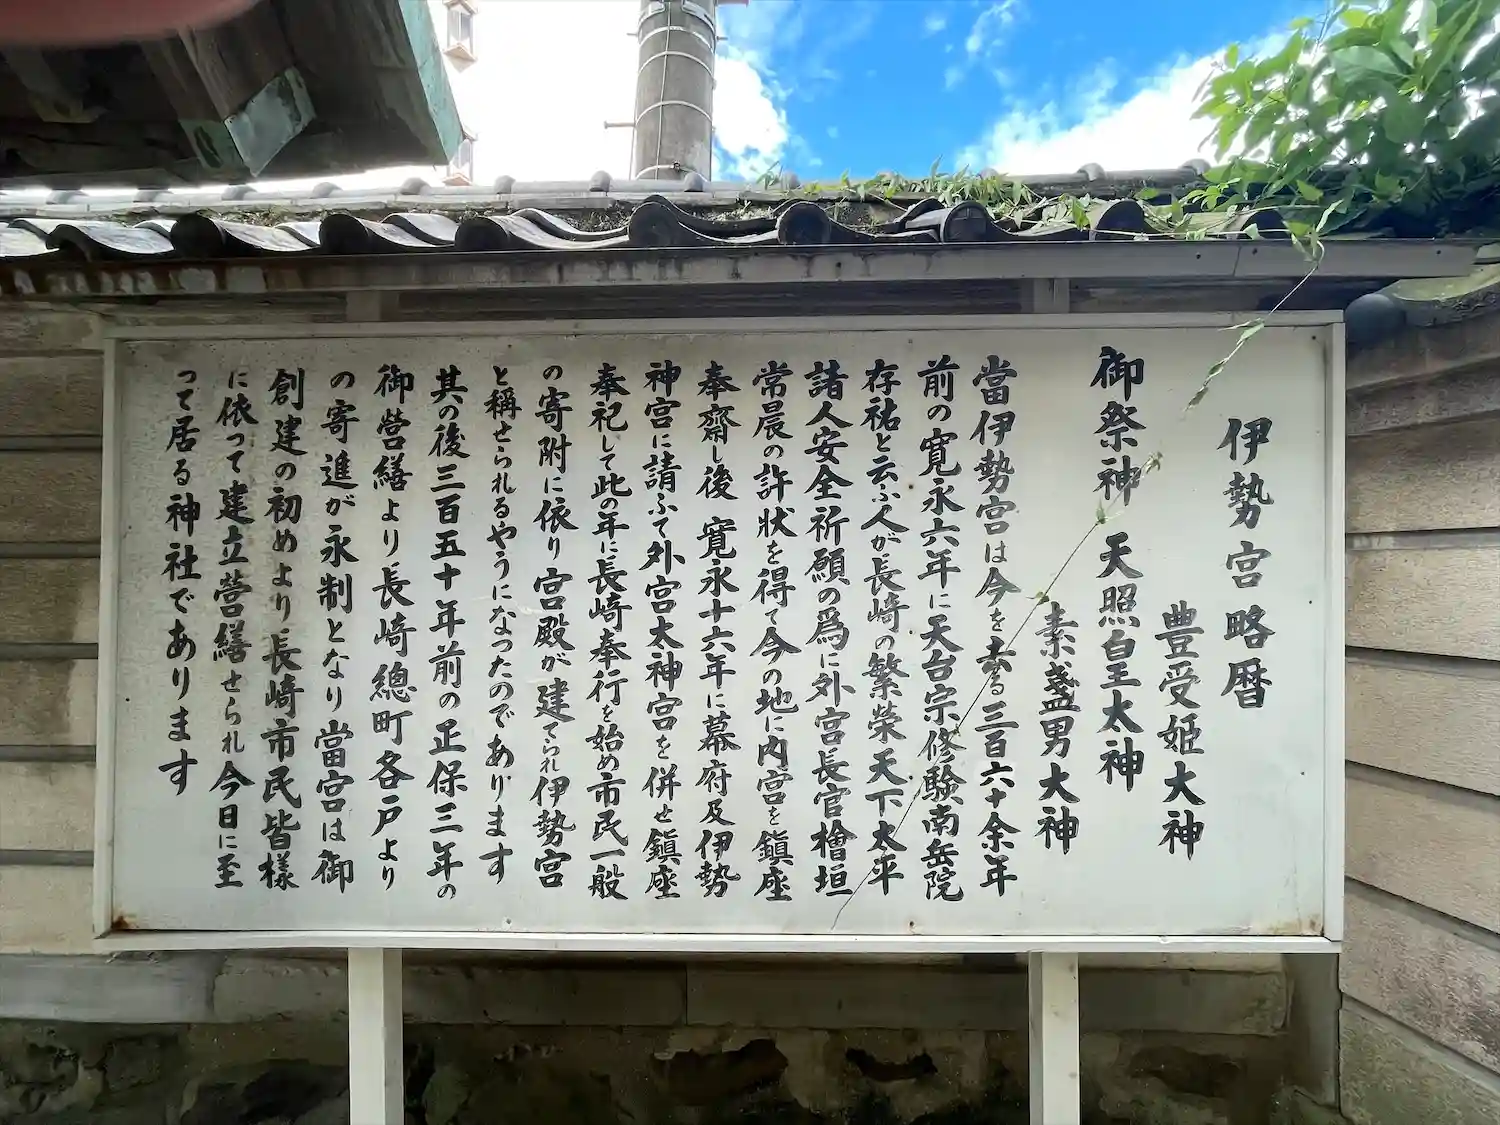 伊勢宮略暦
豊受姫大神
御祭神 天照皇太神
素盞男大神
當伊勢宮は今を去る三百六十余年
前の寛永六年に天台宗修験南岳院
存祐と云ふ人が長崎の繁栄天下太平
諸人安全祈願の為に外宮長官檜垣
常晨の許状を得て今の地に内宮を鎮座
奉齋し後 寛永十六年に幕府及伊勢
神宮に請ふて外宮太神宮を併せ鎮座
奉祀して此の年に長崎奉行を始め市民一般
の寄附に依り宮殿が建てられ伊勢宮
と稱せられるやうになったのであります
其の後三百五十年前の正保三年の
御営繕より長崎總町各戸より
の寄進が永制となり當宮は御
創建の初めより長崎市民皆様
に依って建立営繕せられ今日に至
って居る神社であります